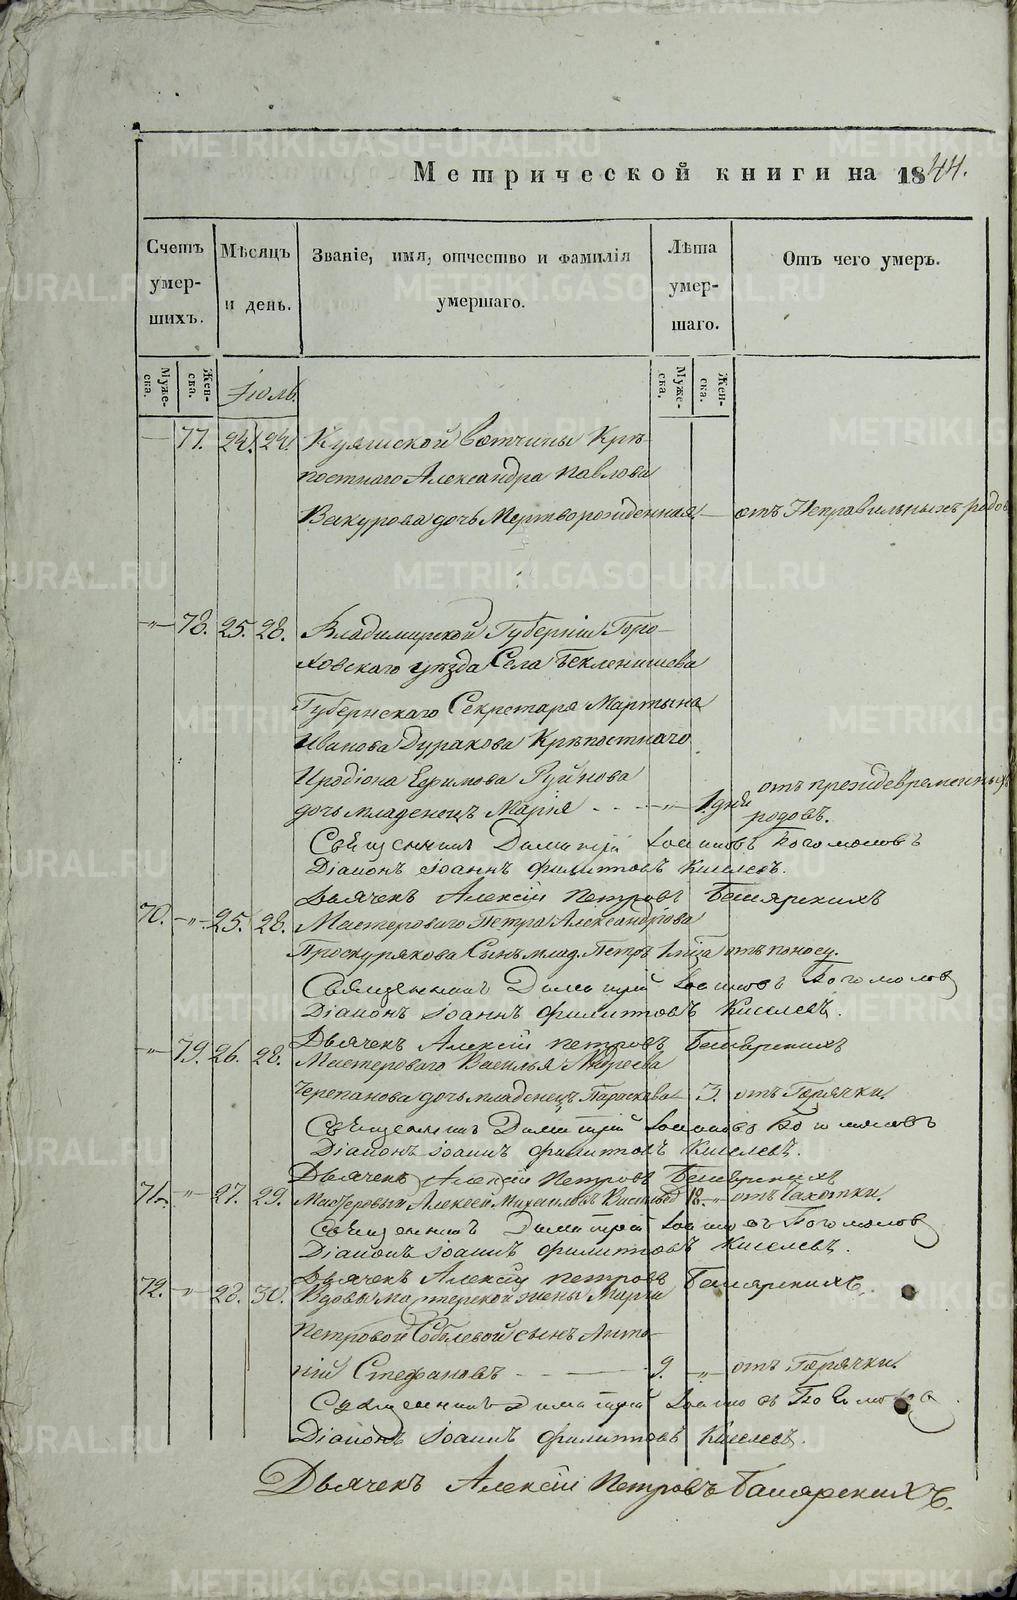 Метрической книги на 1844.
Счетъ умершихъ.
Мѣсяцъ и день.
Званіе, имя, отчество и фамилія умершаго.
Лѣта умершаго.
Отъ чего умеръ.
Мужеска. Женска.
Іюль.
Мужеска. Женска.
— 77. 24. 24. Куяшской Вотчины Крѣ-
постнаго Александра Павлова
Вакурова дочь Мертворожденная — отъ Неправильныхъ родов
—"— 78. 25. 28. Владимирской Губерніи Горо-
ховскаго уѣзда Села
Губернскаго Секретаря Мартына
Иванова Дуракова Крѣпостнаго
Иродіона Ефимова
дочь младенецъ Марія - - - —"— 1 дня отъ преждевременныхъ
родовъ.
Священникъ Димитрій Іоанновъ Богомоловъ
Діаконъ Іоаннъ Филиповъ Киселевъ.
Дьячекъ Алексій Петровъ
70. —"— 25. 28. Мастероваго Петра Александрова
Проскурякова Сынъ млад. Петръ отъ поносу.
Священникъ Димитрій Іоанновъ Богомолов
Діаконъ Іоаннъ Филиповъ Киселевъ.
Дьячекъ Алексій Петровъ
—"— 79. 26. 28. Мастероваго Василья Андреева
Черепанова дочь младенецъ Параскева 3. отъ Горячки.
Священникъ Димитрій Іоанновъ Богомоловъ
Діаконъ Іоаннъ Филиповъ Киселевъ.
Дьячекъ Алексій Петровъ
71. —"— 27. 29. Мастеровый Алексей Михаиловъ 18. —"— отъ Чахотки.
Священникъ Димитрій Іоанновъ Богомолов
Діаконъ Іоаннъ Филиповъ Киселевъ.
Дьячекъ Алексій Петровъ
72. —"— 28. 30. Вдовы мастерской жены Марьи
Петровой Соблевой сынъ Анто-
ній Стефановъ - - — 9. —"— отъ Горячки.
Священникъ Димитрій
Діаконъ Іоаннъ Филиповъ Киселевъ.
Дьячекъ Алексій Петровъ
METRIKI.GASO-URAL.RU